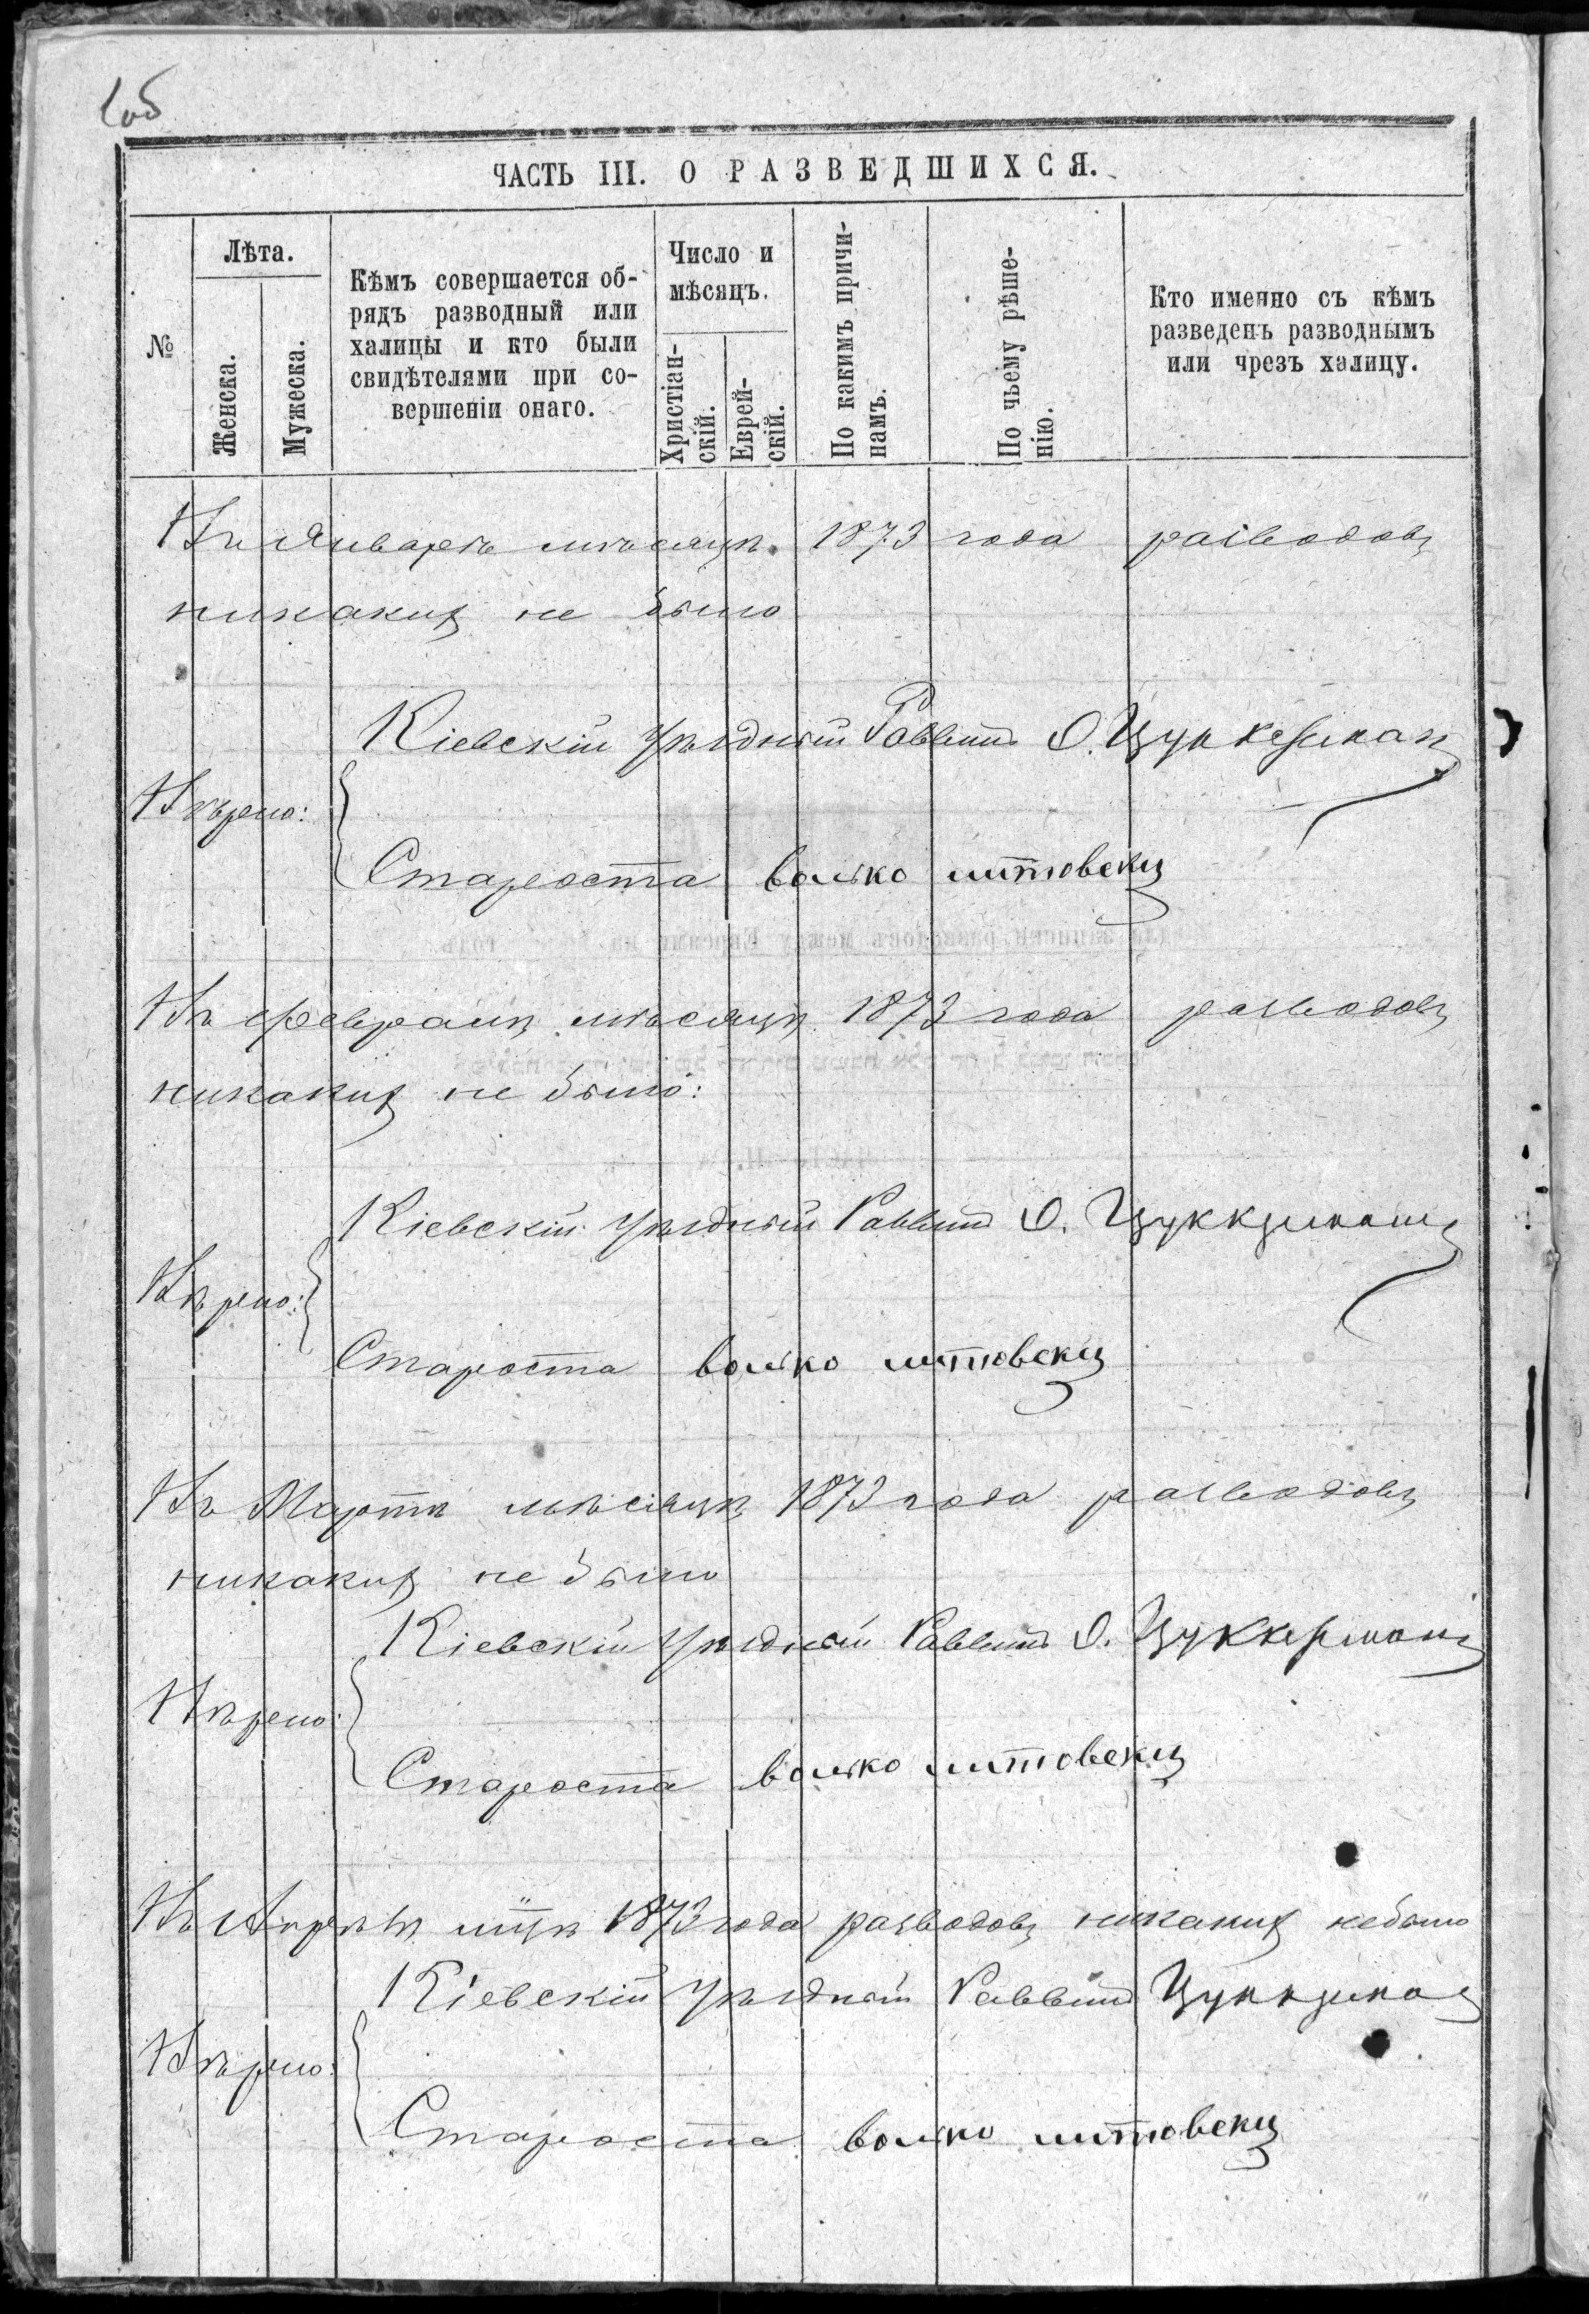 1об
ЧАСТЬ III. О РАЗВЕДШИХСЯ.
№
Лѣта.
Женска.
Мужеска.
Кѣмъ совершается об-
рядъ разводный или
халицы и кто были
свидѣтелями при со-
вершеніи онаго.
Число и
мѣсяцъ.
Христіан-
скій.
Еврей-
скій.
По какимъ причи-
намъ.
По чьему рѣше-
нію.
Кто именно съ кѣмъ
разведенъ разводнымъ
или чрезъ халицу.
Въ Январѣ мѣсяцѣ 1873 года разводовъ
никакихъ не было
Кіевскій уѣздный Раввинъ О. Цуккерман
Вѣрно:
Староста волько литовскиц
Въ Февралѣ мѣсяцѣ 1873 года разводовъ
никакихъ не было:
Кіевскій уѣздный Раввинъ О. Цуккерманъ
Вѣрно:
Староста волько литовскиц
Въ Мартѣ мѣсяцѣ 1873 года разводовъ
никакихъ не было
Кіевскій уѣздный Раввинъ О. Цуккерманъ
Вѣрно:
Староста волько литовскиц
Въ Апрелѣ мцѣ 1873 года разводовъ никакихъ небыло
Кіевскій уѣздный Раввинъ Цуккерман
Вѣрно:
Староста волько литовскиц